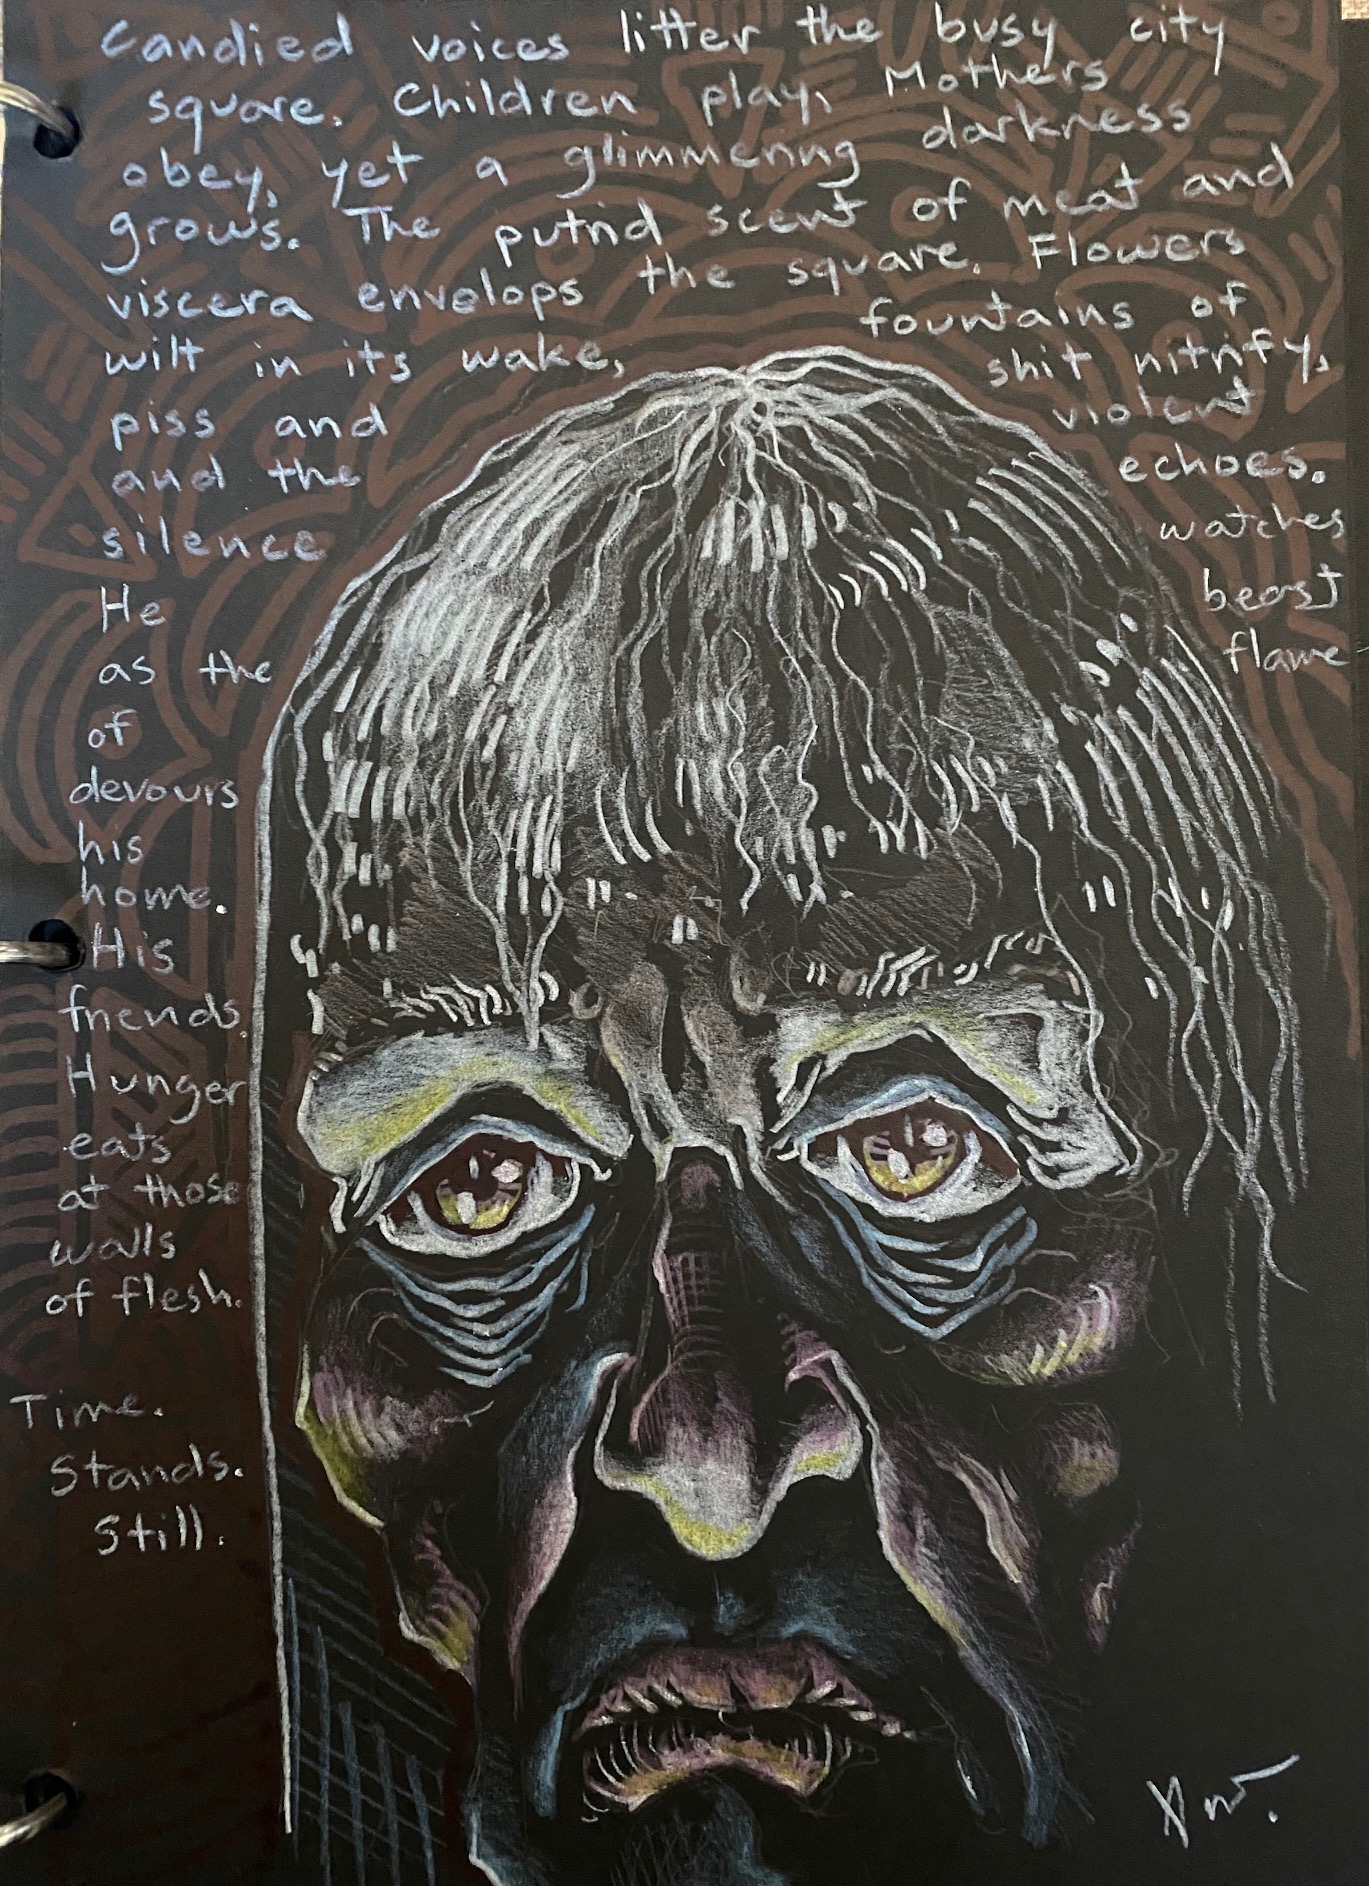 Candied voices litter the busy city
square. Children play, Mothers
obey, yet a glimmering darkness
grows. The putrid scent of meat and
viscera envelops the square. Flowers
wilt in its wake, fountains of
piss and shit nitrify,
and the violent
silence echoes.
He watches
as the beast
of flame
devours
his
home.
His
friends.
Hunger
eats
at those
walls
of flesh.
Time.
Stands.
Still.